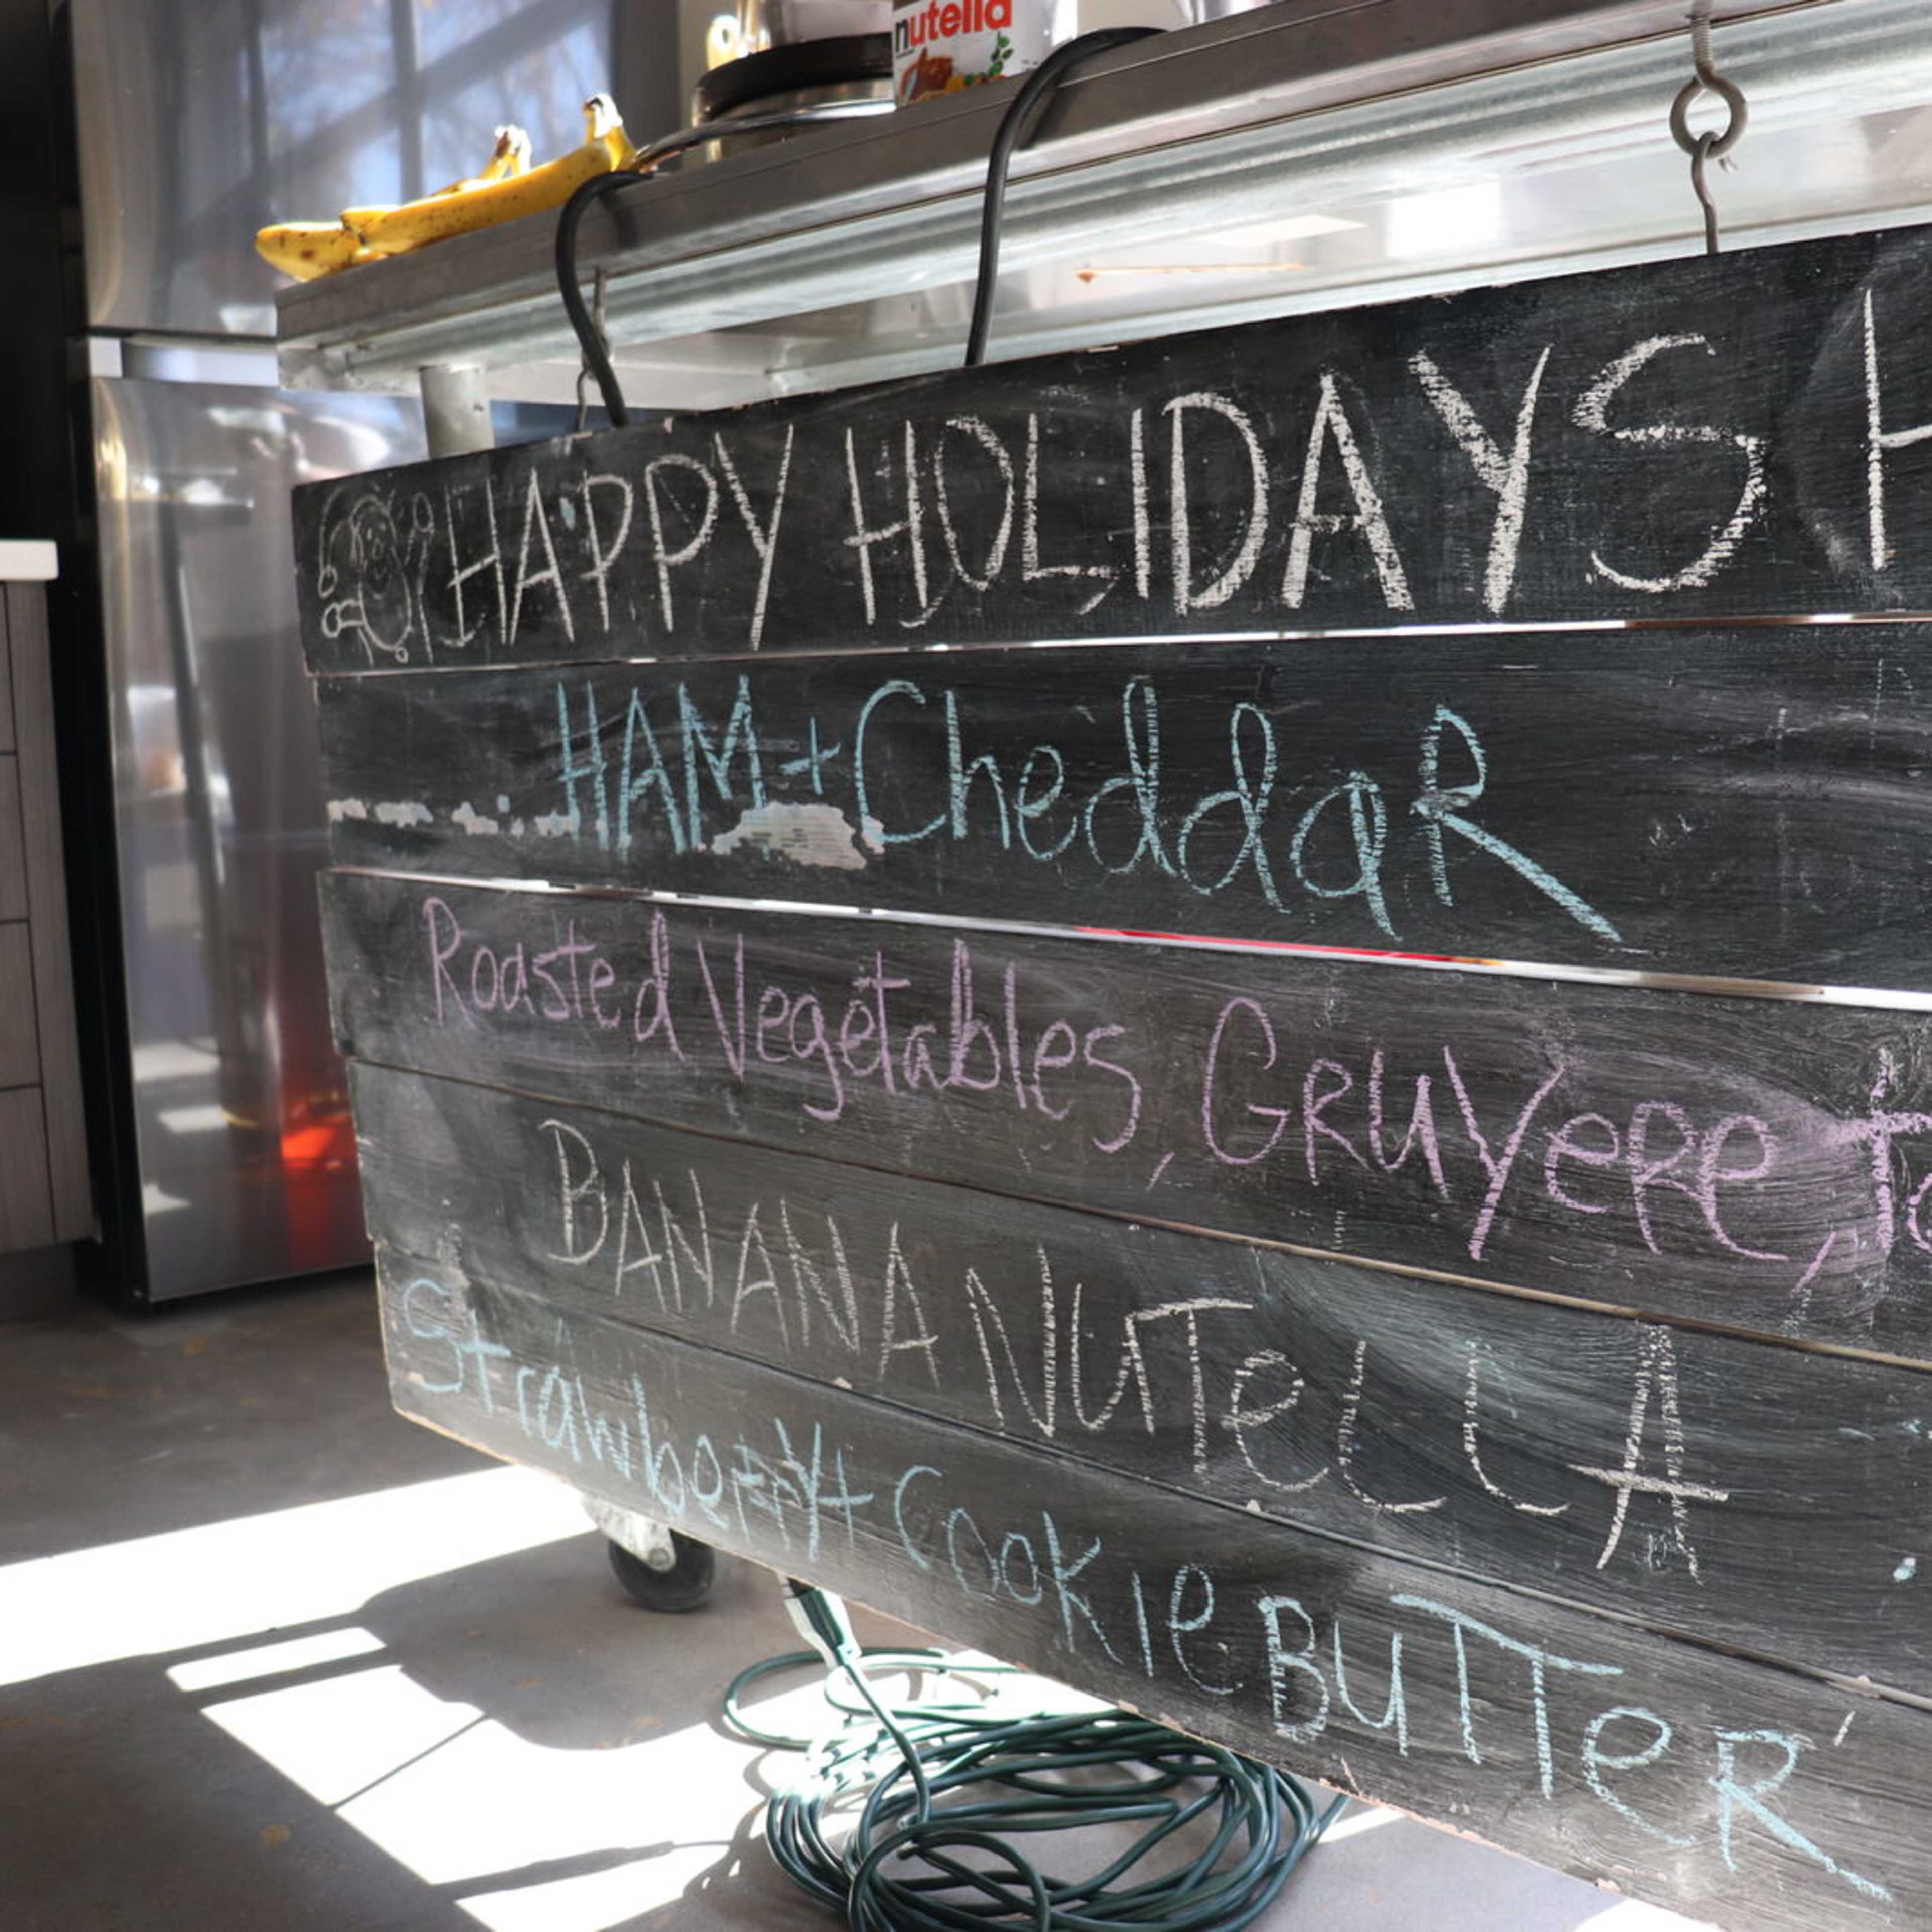 nutella
HAPPY HOLIDAYS H
HAM + CheddaR
Roasted Vegetables, GRUYeRe,
BANANA NUTeLLA
Strawberry + Cookie BUTTeR